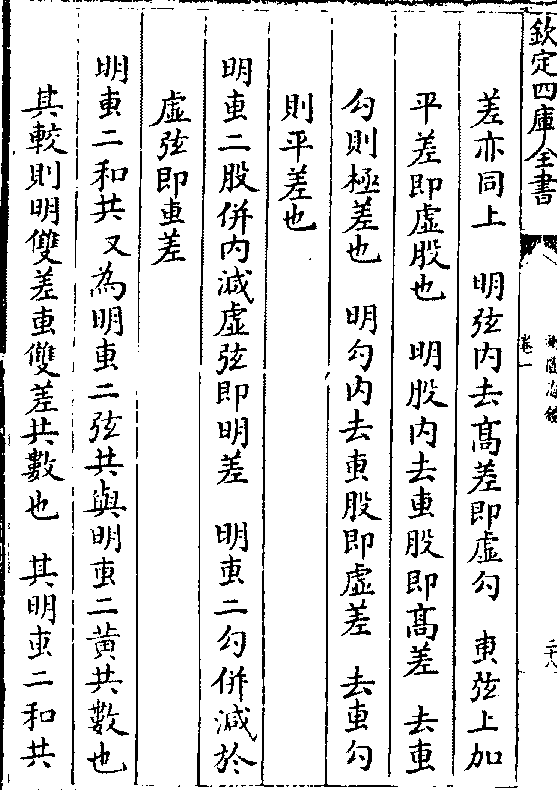 欽定四庫全書
測圓海鏡
卷一
二十八
差亦同上　明弦内去髙差即虚勾　叀弦上加
平差即虚股也　明股内去叀股即髙差　去叀
勾則極差也　明勾内去叀股即虚差　去叀勾
則平差也
明叀二股併内減虚弦即明差　明叀二勾併減於
虚弦即叀差
明叀二和共又為明叀二弦共與明叀二黄共數也
其較則明雙差叀雙差共數也　其明叀二和共